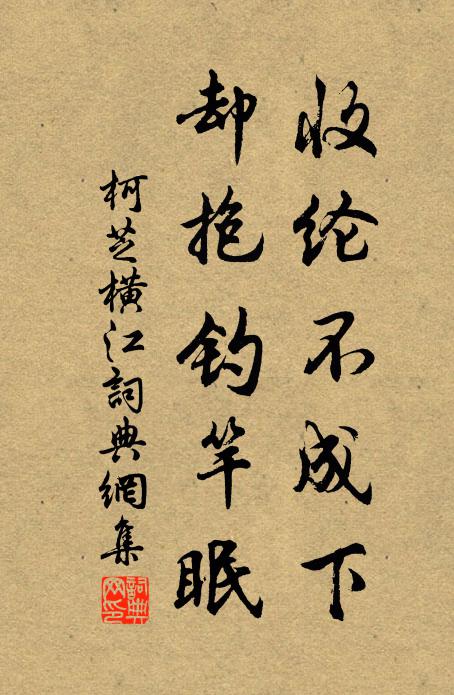 收纶不成下
却抱钓竿眠
柯芝橫江詞典網集
詞典网印